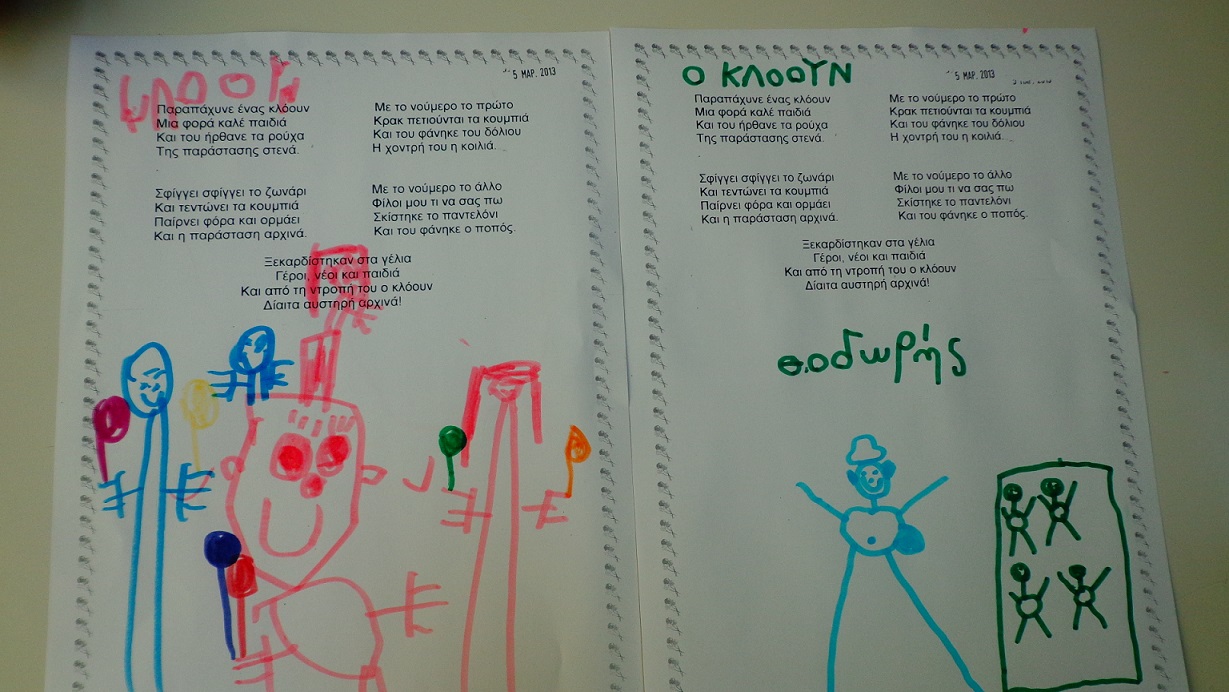 ΚΛΟΟΥΝ
5 ΜΑΡ. 2013
Παραπάχυνε ένας κλόουν
Μια φορά καλέ παιδιά
Και του ήρθανε τα ρούχα
Της παράστασης στενά.
Με το νούμερο το πρώτο
Κρακ πετιούνται τα κουμπιά
Και του φάνηκε του δόλιου
Η χοντρή του η κοιλιά.
Σφίγγει σφίγγει το ζωνάρι
Και τεντώνει τα κουμπιά
Παίρνει φόρα και ορμάει
Και η παράσταση αρχινά.
Με το νούμερο το άλλο
Φίλοι μου τι να σας πω
Σκίστηκε το παντελόνι
Και του φάνηκε ο ποπός.
Ξεκαρδίστηκαν στα γέλια
Γέροι, νέοι και παιδιά
Και από τη ντροπή του ο κλόουν
Δίαιτα αυστηρή αρχινά!
Ο ΚΛΟΟΥΝ
5 ΜΑΡ. 2013
Παραπάχυνε ένας κλόουν
Μια φορά καλέ παιδιά
Και του ήρθανε τα ρούχα
Της παράστασης στενά.
Με το νούμερο το πρώτο
Κρακ πετιούνται τα κουμπιά
Και του φάνηκε του δόλιου
Η χοντρή του η κοιλιά.
Σφίγγει σφίγγει το ζωνάρι
Και τεντώνει τα κουμπιά
Παίρνει φόρα και ορμάει
Και η παράσταση αρχινά.
Με το νούμερο το άλλο
Φίλοι μου τι να σας πω
Σκίστηκε το παντελόνι
Και του φάνηκε ο ποπός.
Ξεκαρδίστηκαν στα γέλια
Γέροι, νέοι και παιδιά
Και από τη ντροπή του ο κλόουν
Δίαιτα αυστηρή αρχινά!
θ.οδωρής